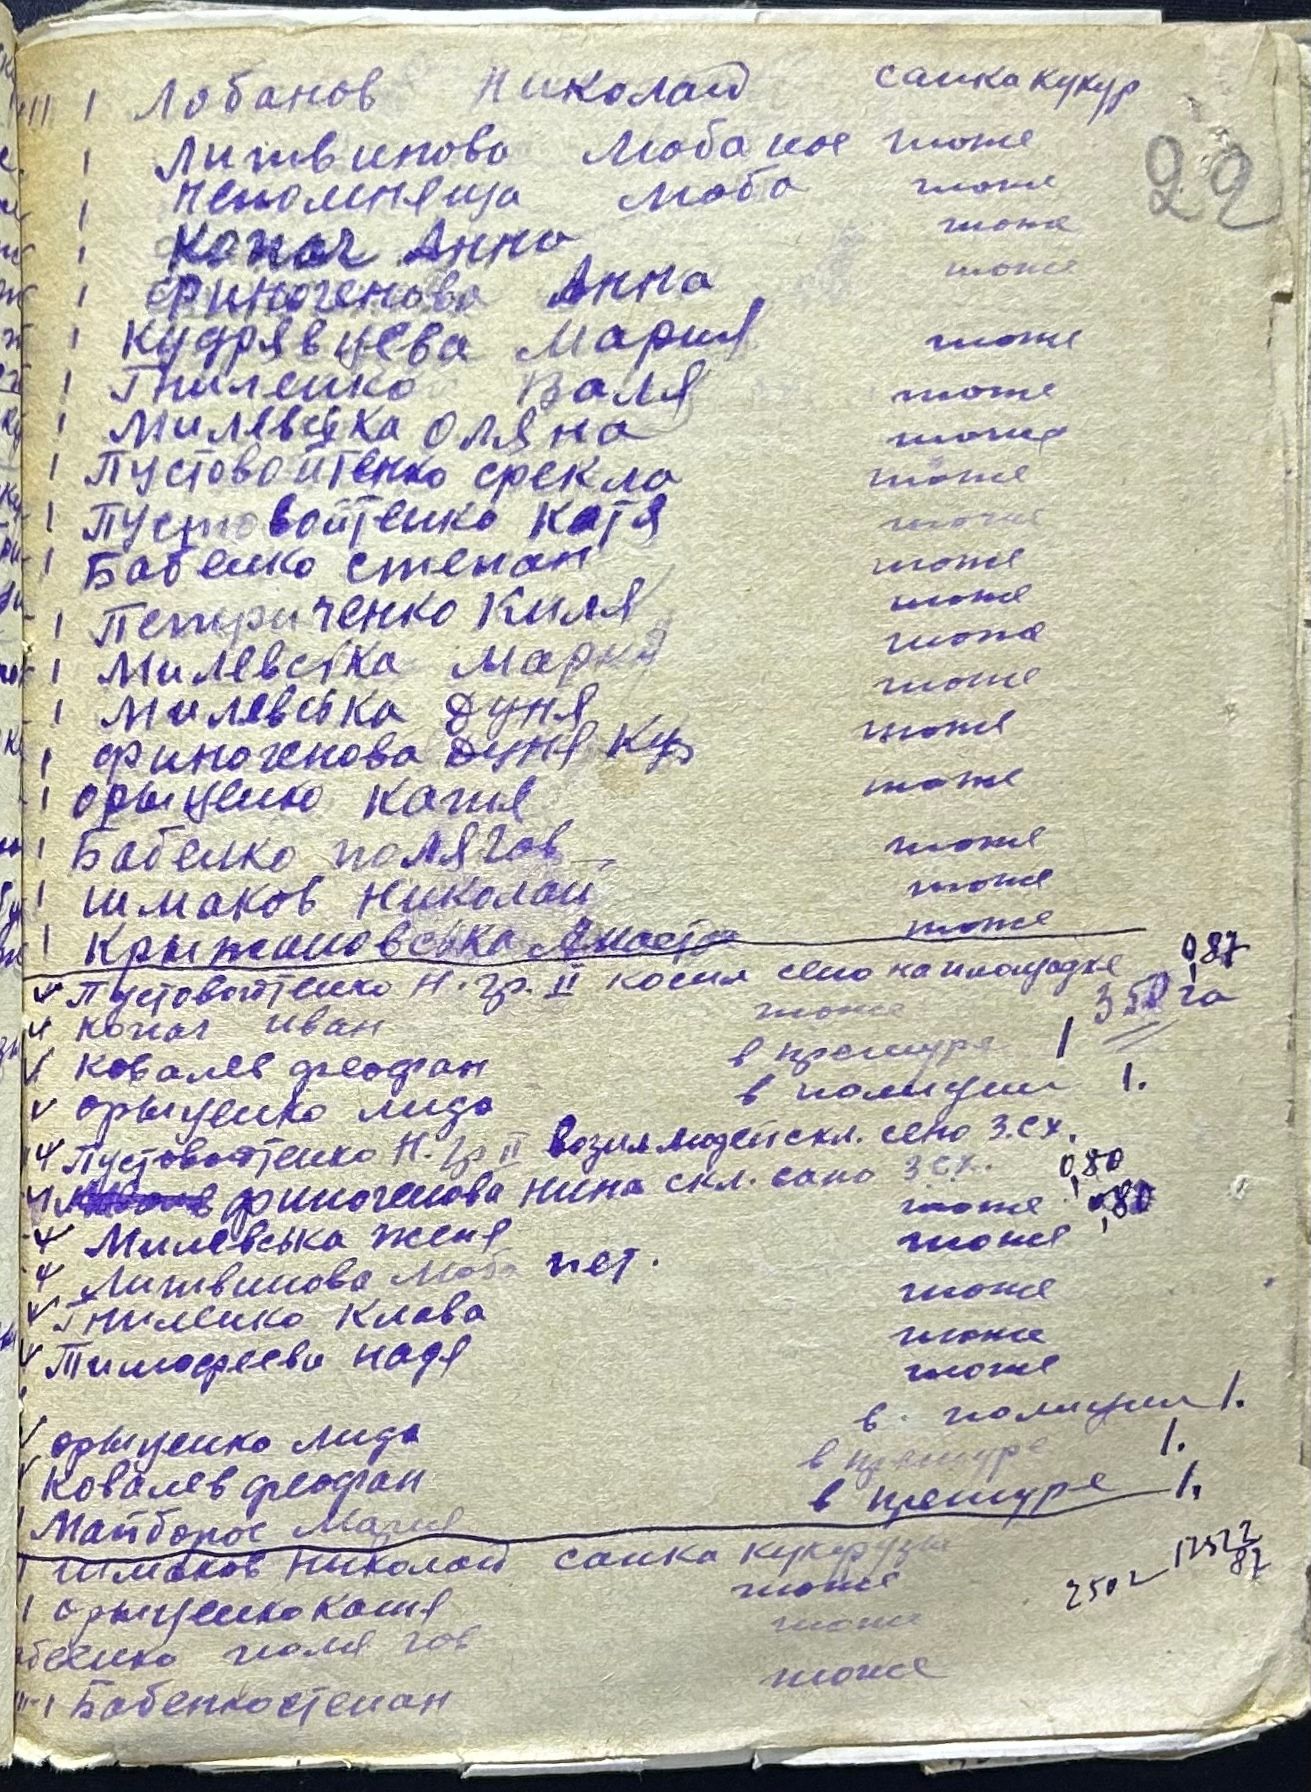 Лобанов Николай сапка кукур
22
Литвинова Люба тоже
Непомняща Люба тоже
Копач Анна тоже
Финогенова Анна тоже
Кудрявцева Мария тоже
Гниленко Валя тоже
Милевська Оляна тоже
Пустовойтенко Фекла тоже
Пустовойтенко Катя тоже
Бабенко Степан тоже
Петриченко Киля тоже
Милевська тоже
Милевська Дуня тоже
Финогенова Дуня Куз тоже
Орыщенко Катя тоже
Бабенко Поля Гов тоже
Шмаков Николай тоже
Крыжановська тоже
Пустовойтенко Н. гр. II косил сено на площадке 0,87
Копач Иван тоже га
Ковалев Феофан 1
Орыщенко Лида в полиции 1.
Пустовойтенко Н. гр II возил людей скл. сено З.С.Х.
Финогенова Нина скл. сано З.С.Х. 0,80
Милевська Женя тоже 0,80
Литвинова Люба Пет. тоже
Гниленко Клава тоже
Тимофеева Надя тоже
тоже
Орыщенко Лида в полиции 1.
Ковалев Феофан 1.
Майборос Мария 1.
Шмаков Николай сапка кукурузы
Орыщенко Катя тоже 250
Поля Гов тоже
Бабенко Степан тоже